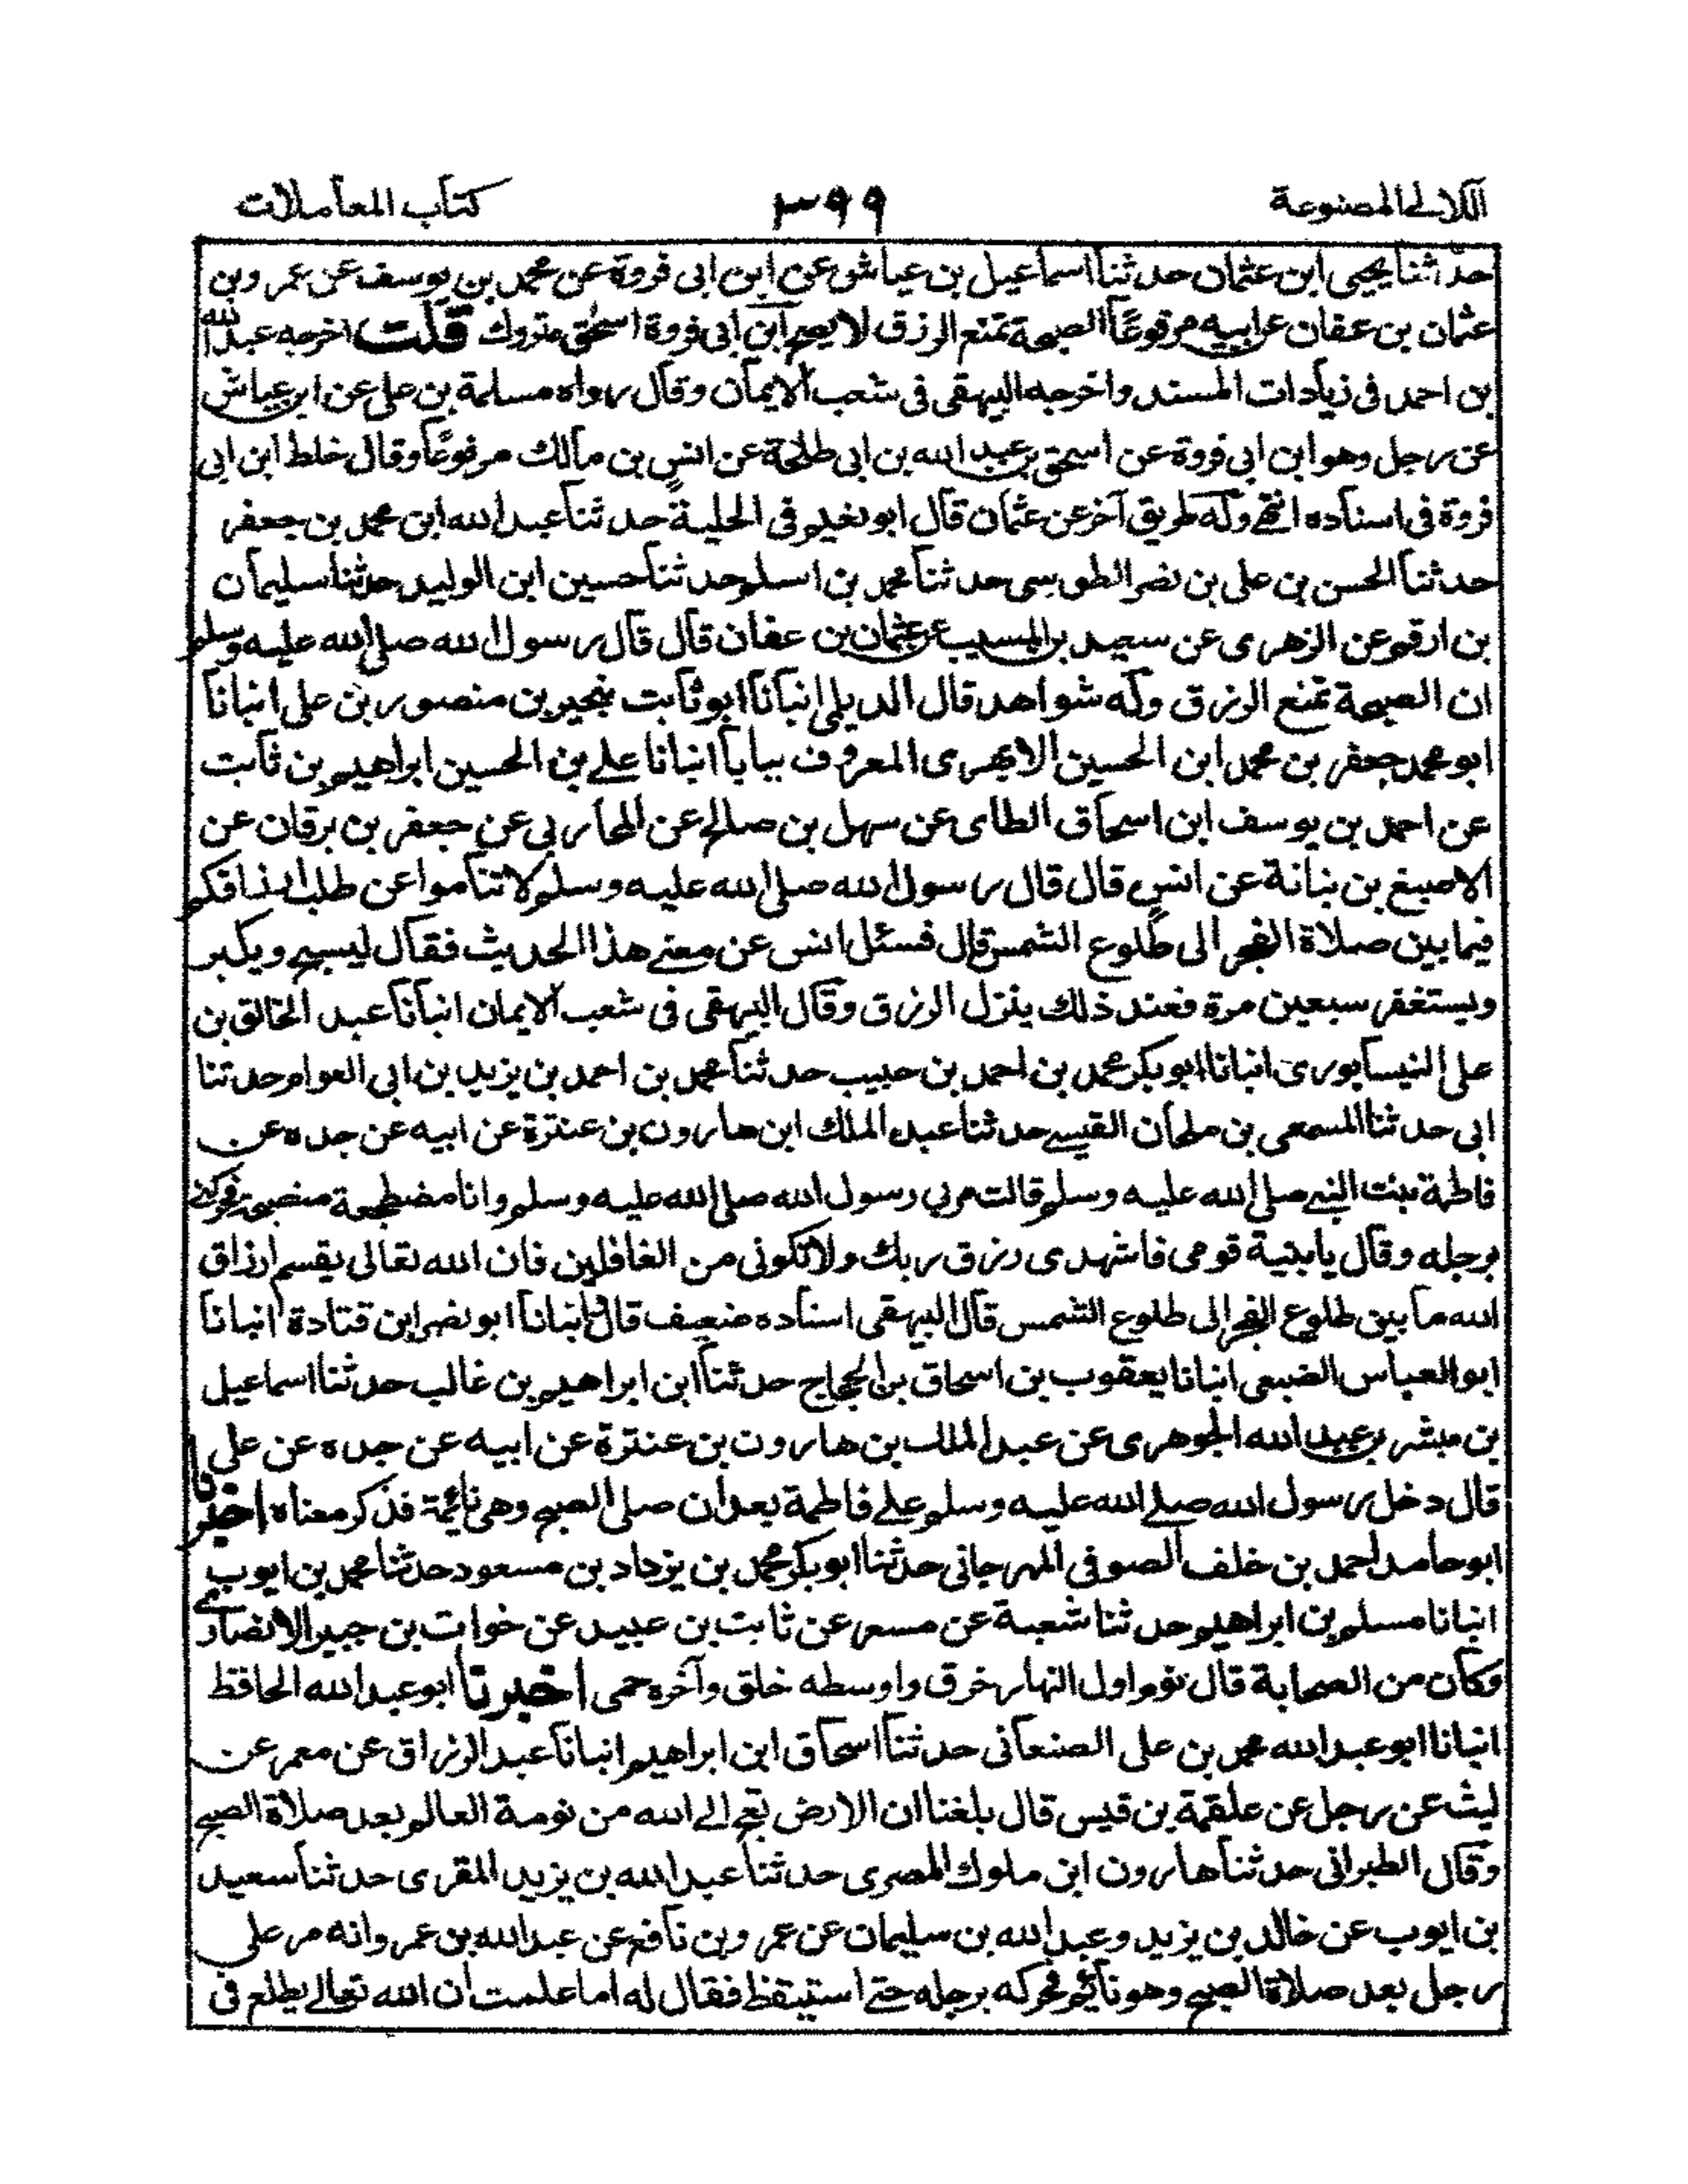 اللآلى المصنوعة
٣٩٩
كتاب المعاملات
حدثنا يحيى ابن عثمان حدثنا اسماعيل بن عياش عن ابن ابى فروة عن محمد بن يوسف عن عمرو بن
عثمان بن عفان عن ابيه مرفوعًا الصبحة تمنع الرزق لا يصح ابن ابى فروة اسحٰق متروك قلت اخرجه عبد الله
بن احمد فى زيادات المسند واخرجه البيهقى فى شعب الايمان وقال رواه مسلمة بن على عن ابن عياش
عن رجل وهو ابن ابى فروة عن اسحق بن عبد الله بن ابى طلحة عن انس بن مالك مرفوعًا وقال خلط ابن ابى
فروة فى اسناده انتهى وله طريق آخر عن عثمان قال ابو نعيم فى الحلية حدثنا عبد الله ابن محمد بن جعفر
حدثنا الحسن بن على بن نصر الطوسى حدثنا محمد بن اسلم حدثنا حسين ابن الوليد حدثنا سليمان
بن ارقم عن الزهرى عن سعيد بن المسيب عن عثمان بن عفان قال قال رسول الله صلى الله عليه وسلم
ان الصبحة تمنع الرزق وله شواهد قال الديلمى انبانا ابو ثابت بنجير بن منصور بن على انبانا
ابو محمد جعفر بن محمد ابن الحسين الابهرى المعروف ببابا انبانا على بن الحسين ابراهيم بن ثابت
عن احمد بن يوسف ابن اسحاق الطاى عن سهل بن صالح عن المحاربى عن جعفر بن برقان عن
الاصبغ بن نباتة عن انس قال قال رسول الله صلى الله عليه وسلم لا تناموا عن طلب ارزاقكم
فيما بين صلاة الفجر الى طلوع الشمس قال فسئل انس عن معنى هذا الحديث فقال ليسبح ويكبر
ويستغفر سبعين مرة فعند ذلك ينزل الرزق وقال البيهقى فى شعب الايمان انبانا عبد الخالق بن
على النيسابورى انبانا ابو بكر محمد بن احمد بن حبيب حدثنا محمد بن احمد بن يزيد بن ابى العوام حدثنا
ابى حدثنا المسمعى بن ملحان القيسى حدثنا عبد الملك ابن هارون بن عنترة عن ابيه عن جده عن
فاطمة بنت النبى صلى الله عليه وسلم قالت مر بى رسول الله صلى الله عليه وسلم وانا مضطجعة متصبحة فحركنى
برجله وقال يا بنية قومى فاشهدى رزق ربك ولا تكونى من الغافلين فان الله تعالى يقسم ارزاق
الله ما بين طلوع الفجر الى طلوع الشمس قال البيهقى اسناده ضعيف قال انبانا ابو نصر ابن قتادة انبانا
ابو العباس الضبعى انبانا يعقوب بن اسحاق بن الحجاج حدثنا ابن ابراهيم بن غالب حدثنا اسماعيل
بن مبشر بن عبد الله الجوهرى عن عبد الملك بن هارون بن عنترة عن ابيه عن جده عن على
قال دخل رسول الله صلى الله عليه وسلم على فاطمة بعد ان صلى الصبح وهى نائمة فذكر معناه اخبرنا
ابو حامد احمد بن خلف الصوفى المهرجانى حدثنا ابو بكر محمد بن يزداد بن مسعود حدثنا محمد بن ايوب
انبانا مسلم بن ابراهيم حدثنا شعبة عن مسعر عن ثابت بن عبيد عن خوات بن جبير الانصارى
وكان من الصحابة قال نوم اول النهار خرق واوسطه خلق وآخره حمى اخبرنا ابو عبد الله الحافظ
انبانا ابو عبد الله محمد بن على الصنعانى حدثنا اسحاق ابن ابراهيم انبانا عبد الرزاق عن معمر عن
ليث عن رجل عن علقمة بن قيس قال بلغنا ان الارض تعج الى الله من نومة العالم بعد صلاة الصبح
وقال الطبرانى حدثنا هارون ابن ملوك المصرى حدثنا عبد الله بن يزيد المقرى حدثنا سعيد
بن ايوب عن خالد بن يزيد وعبد الله بن سليمان عن عمرو بن نافع عن عبد الله بن عمرو انه مر على
رجل بعد صلاة الصبح وهو نائم فحركه برجله حتى استيقظ فقال له اما علمت ان الله تعالى يطلع فى